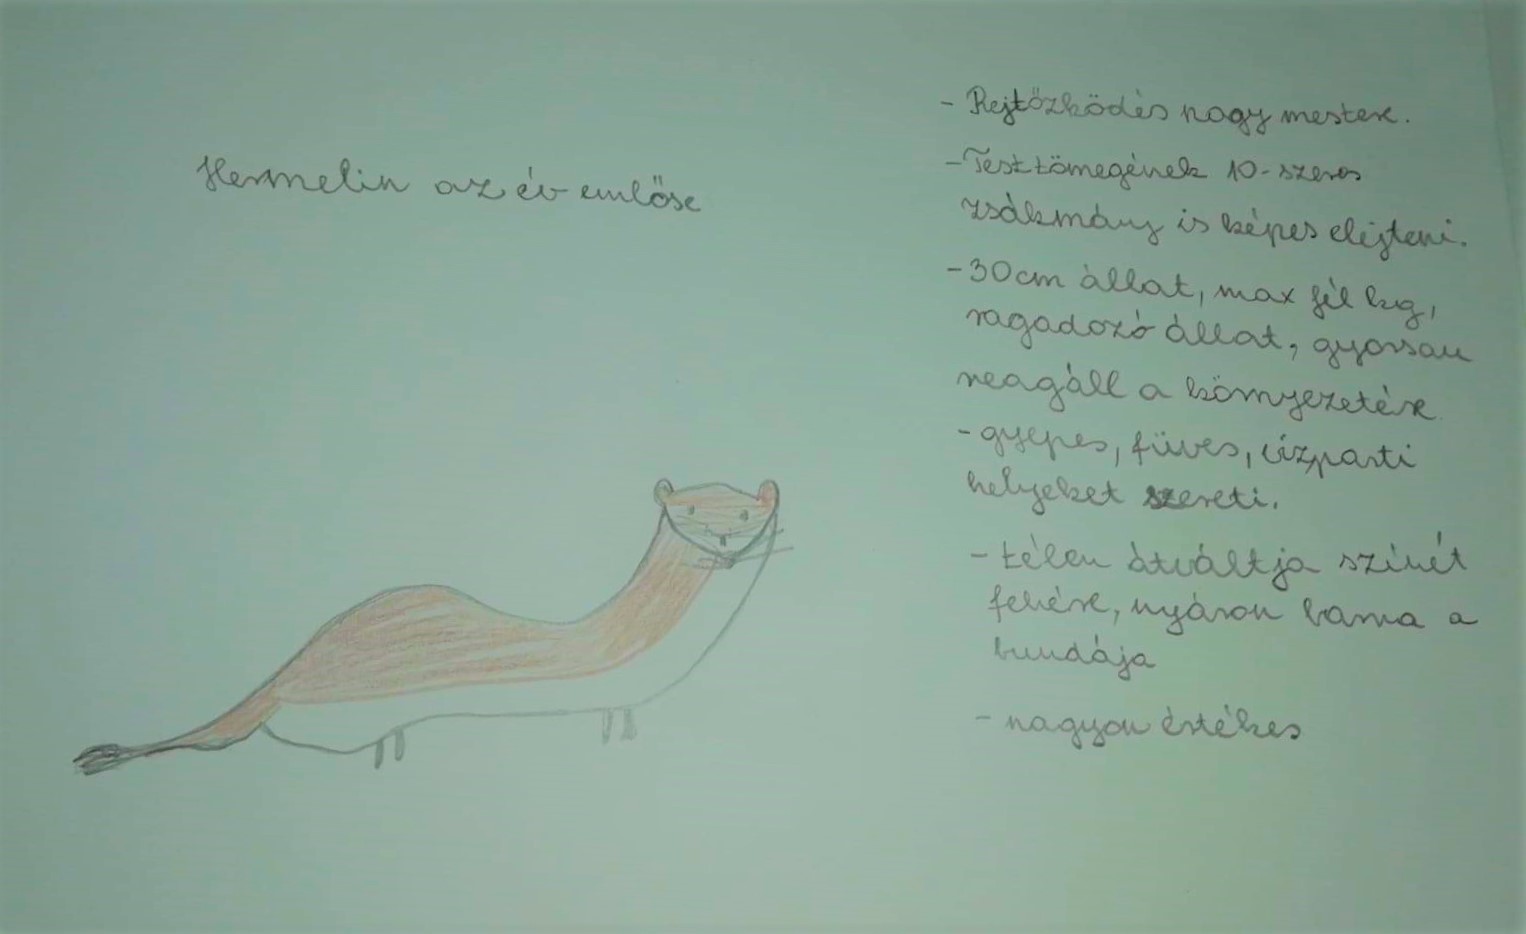 Hermelin az év emlőse
- Rejtőzködés nagy mestere.
- Testtömegének 10-szeres
zsákmány is képes elejteni.
- 30cm állat, max fél kg,
ragadozó állat, gyorsan
reagáll a környezetére
- gyepes, füves, vízparti
helyeket szereti.
- télen átváltja színét
fehére, nyáron barna a
bundája
- nagyon értékes